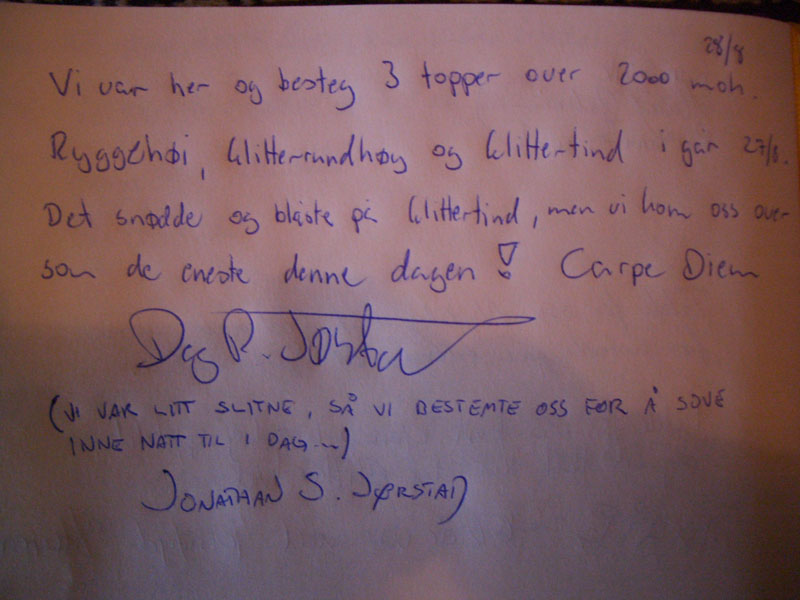 28/8
Vi var her og besteg 3 topper over 2000 moh.
Ryggehøi, Glitterrundhøy og Glittertind i går 27/8.
Det snødde og blåste på Glittertind, men vi kom oss over
som de eneste denne dagen! Carpe Diem
Dag R. Jørstad
(VI VAR LITT SLITNE, SÅ VI BESTEMTE OSS FOR Å SOVE
INNE NATT TIL I DAG...)
JONATHAN S. JØRSTAD